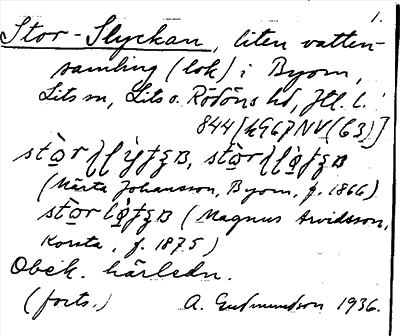 1.
Stor-Slyckan, liten vatten-
samling (lok) i Byom,
Lits sn, Lits o. Rödöns hd, Jtl. l.
844 [h967 NV (63)]
(Märta Johansson, Byom, f. 1866)
(Magnus Arvidsson,
Korsta, f. 1875)
Obek. härledn.
(forts.) A. Gudmundson 1936.